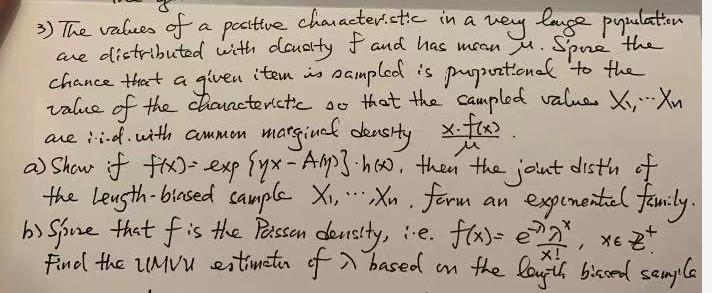 3) The values of a positive characteristic in a very large population
are distributed with density f and has mean μ. S'pose the
chance that a given item is sampled is proportional to the
value of the characteristic so that the sampled values X₁, ⋯ Xn
are i.i.d. with common marginal density x·f(x)/μ.
a) Show if f(x) = exp{ηx - A(η)}·h(x), then the joint distn of
the length-biased sample X₁, ⋯, Xn. form an exponential family.
b) S'pose that f is the Poisson density, i.e. f(x) = e^{-λ}λ^x/x!, x ∈ Z⁺.
Find the UMVU estimator of λ based on the length biased sample